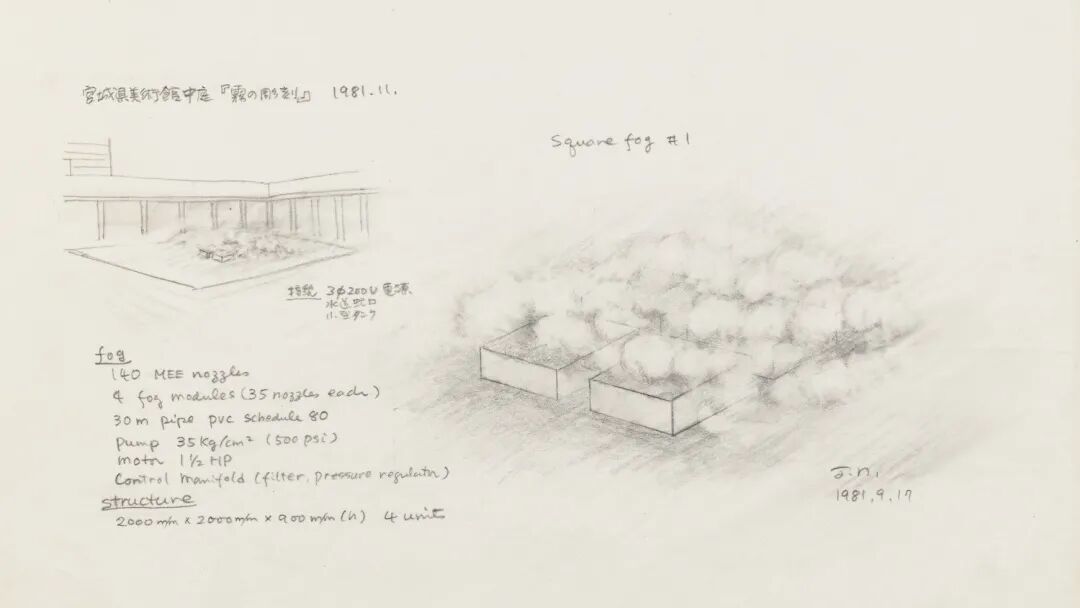 宮城県美術館中庭『霧の彫刻』 1981.11.
Square fog #1
3φ200V電源
水道蛇口
小型タンク
fog
140 MEE nozzles
4 fog modules (35 nozzles each)
30m pipe pvc schedule 80
pump 35Kg/cm² (500 psi)
motor 1½ HP
Control manifold (filter, pressure regulator)
structure
2000 m/m × 2000 m/m × 900 m/m (h) 4 unit
F.N.
1981.9.17